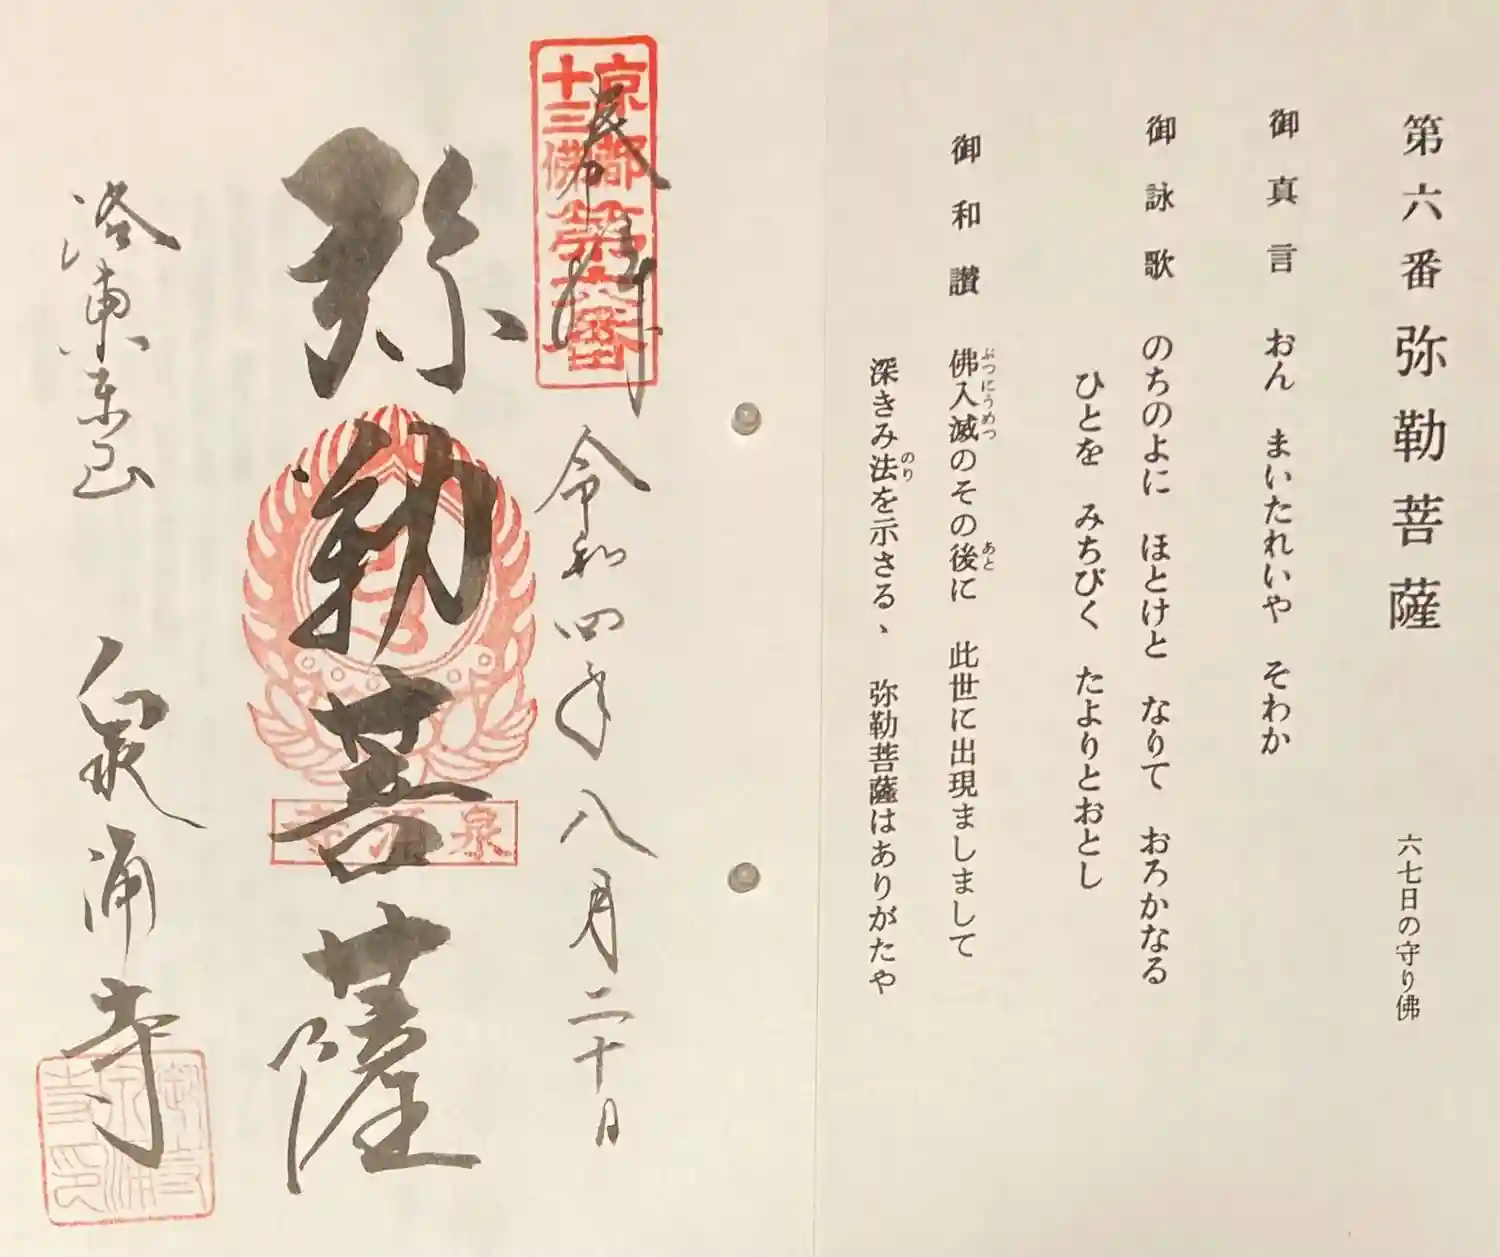 第六番 弥勒菩薩 六七日の守り佛
御真言 おん まいたれいや そわか
御詠歌 のちのよに ほとけと なりて おろかなる
ひとを みちびく たよりとおとし
御和讃 佛入滅のその後に 此世に出現ましまして
ぶつにうめつ あと
深きみ法を示さるゝ 弥勒菩薩はありがたや
のり
京都
十三佛
第六番
奉拝
令和四年八月二十日
弥勒菩薩
泉涌寺
洛東東山 泉涌寺